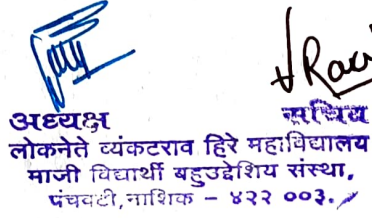 अध्यक्ष सचिव
लोकनेते व्यंकटराव हिरे महाविद्यालय
माजी विद्यार्थी बहुउद्देशिय संस्था,
पंचवटी,नाशिक - ४२२ ००३.